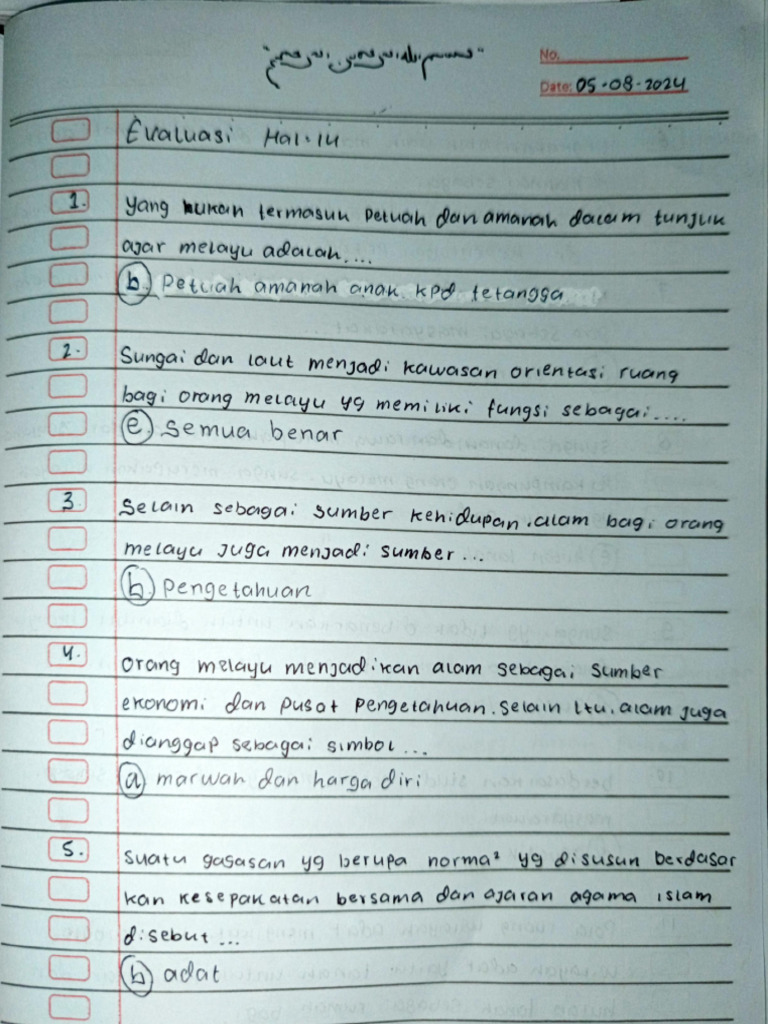 No.
Date: 05-08-2024
Evaluasi Hal.14
1. Yang bukan termasuk Petuah dan amanah dalam tunjuk
ajar melayu adalah....
b. Petuah amanah anak kpd tetangga
2. Sungai dan laut menjadi kawasan orientasi ruang
bagi orang melayu yg memiliki fungsi sebagai....
e. Semua benar
3. Selain sebagai sumber kehidupan.alam bagi orang
melayu juga menjadi sumber...
b. Pengetahuan
4. Orang melayu menjadikan alam sebagai sumber
ekonomi dan pusat pengetahuan.selain itu.alam juga
dianggap sebagai simbol...
a marwah dan harga diri
5. Suatu gagasan yg berupa norma² yg disusun berdasar
kan kesepakatan bersama dan ajaran agama islam
disebut...
b adat